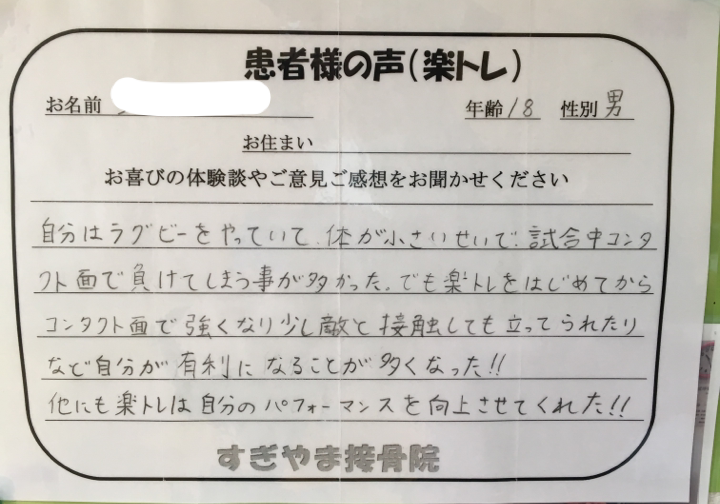 患者様の声(楽トレ)
お名前
年齢 18 性別 男
お住まい
お喜びの体験談やご意見ご感想をお聞かせください
自分はラグビーをやっていて、体が小さいせいで、試合中コンタ
クト面で負けてしまう事が多かった。でも楽トレをはじめてから
コンタクト面で強くなり少し敵と接触しても立ってられたり
など自分が有利になることが多くなった!!
他にも楽トレは自分のパフォーマンスを向上させてくれた!!
すぎやま接骨院